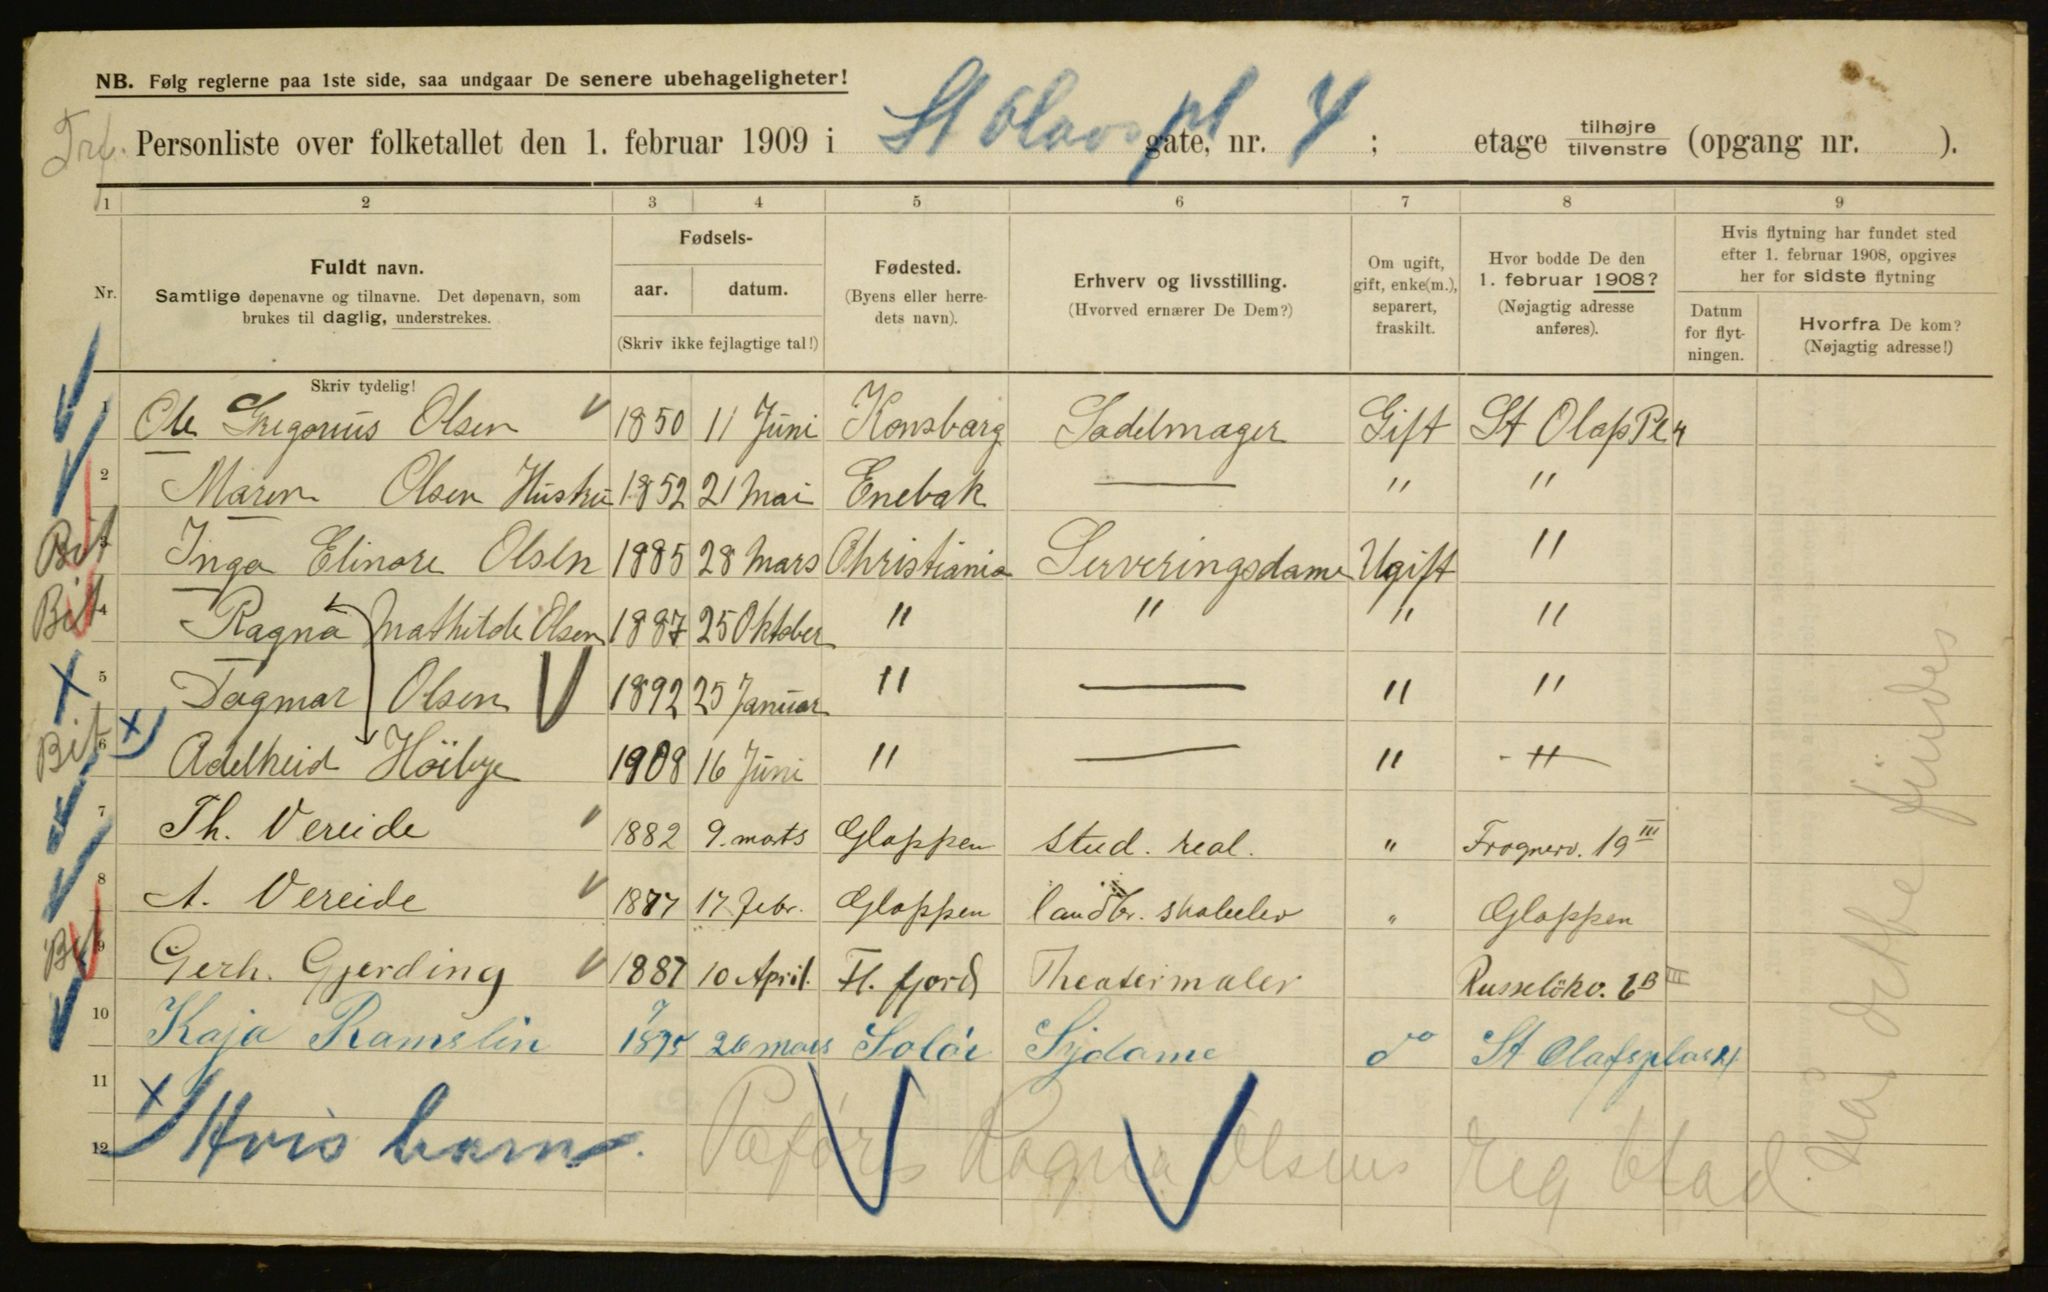 NB. Følg reglerne paa 1ste side, saa undgaar De senere ubehageligheter!
Trf. Personliste over folketallet den 1. februar 1909 i St Olavs pl gate, nr. 4 ; etage tilhøjre tilvenstre (opgang nr. ).
1 2 3 4 5 6 7 8 9
Nr.
Fuldt navn.
Samtlige døpenavne og tilnavne. Det døpenavn, som
brukes til daglig, understrekes.
Skriv tydelig!
Fødsels-
aar. datum.
(Skriv ikke fejlagtige tal!)
Fødested.
(Byens eller herre-
dets navn).
Erhverv og livsstilling.
(Hvorved ernærer De Dem?)
Om ugift,
gift, enke(m.),
separert,
fraskilt.
Hvor bodde De den
1. februar 1908?
(Nøjagtig adresse
anføres).
Hvis flytning har fundet sted
efter 1. februar 1908, opgives
her for sidste flytning
Datum
for flyt-
ningen.
Hvorfra De kom?
(Nøjagtig adresse!)
1 Ole Gregorius Olsen 1850 11 Juni Konsbarg Sadelmager Gift St Olafs Pl 4
2 Maren Olsen Hustru 1852 21 Mai Enebak — " "
Bit 3 Inga Elinore Olsen 1885 28 Mars Christiania Serveringsdame Ugift "
Bit 4 Ragna Mathilde Olsen 1887 25 Oktober " " " "
5 Dagmar Olsen 1892 25 Januar " — " "
Bit 6 Adelheid Höibye 1908 16 Juni " — " "
7 Th. Vereide 1882 9. mars Gloppen stud. real. " Frognerv. 19 III
8 A. Vereide 1877 17 febr. Gloppen landbr. skoleelev " Gloppen
Bit 9 Gerh. Gjerding 1887 10 April. Fl. fjord Theatermaler Russeløkv. 6B III
10 Kaja Ramslin 1875 26 mars Soløe Sydame do Olafsplas 4
11
12 x Hvis barn. Paføres Ragna Olsens reg blad.